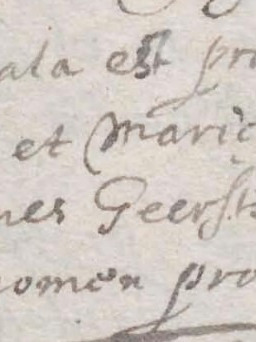 ata est pro
et Marię
nes Geerst
nomen pro